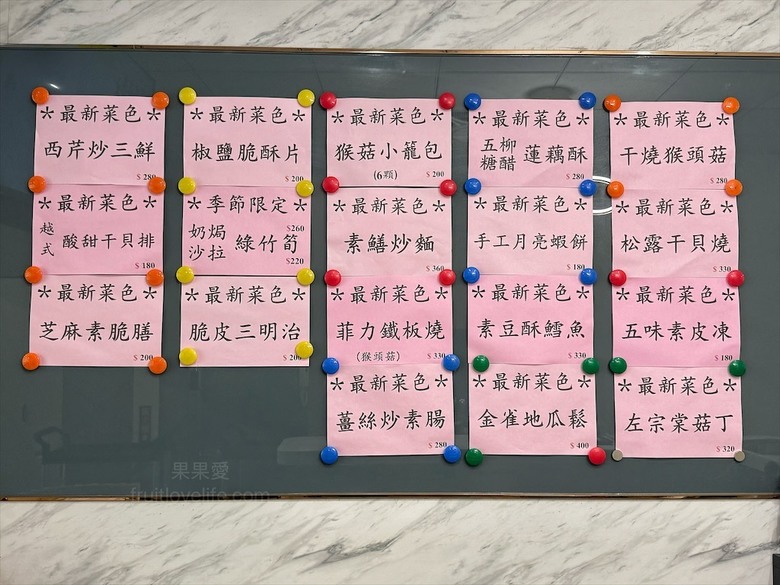 *最新菜色*
西芹炒三鮮
$280
*最新菜色*
越式 酸甜干貝排
$180
*最新菜色*
芝麻素脆膳
$200
*最新菜色*
椒鹽脆酥片
$200
*季節限定*
奶焗 $260
沙拉 綠竹筍
$220
*最新菜色*
脆皮三明治
$200
*最新菜色*
猴菇小籠包
(6顆) $200
*最新菜色*
素鱔炒麵
$360
*最新菜色*
菲力鐵板燒
(猴頭菇) $330
*最新菜色*
薑絲炒素腸
$280
*最新菜色*
五柳糖醋 蓮藕酥
$280
*最新菜色*
手工月亮蝦餅
$180
*最新菜色*
素豆酥鱈魚
$330
*最新菜色*
金雀地瓜鬆
$400
*最新菜色*
干燒猴頭菇
$280
*最新菜色*
松露干貝燒
$330
*最新菜色*
五味素皮凍
$180
*最新菜色*
左宗棠菇丁
$320
果果愛
fruitlovelife.com